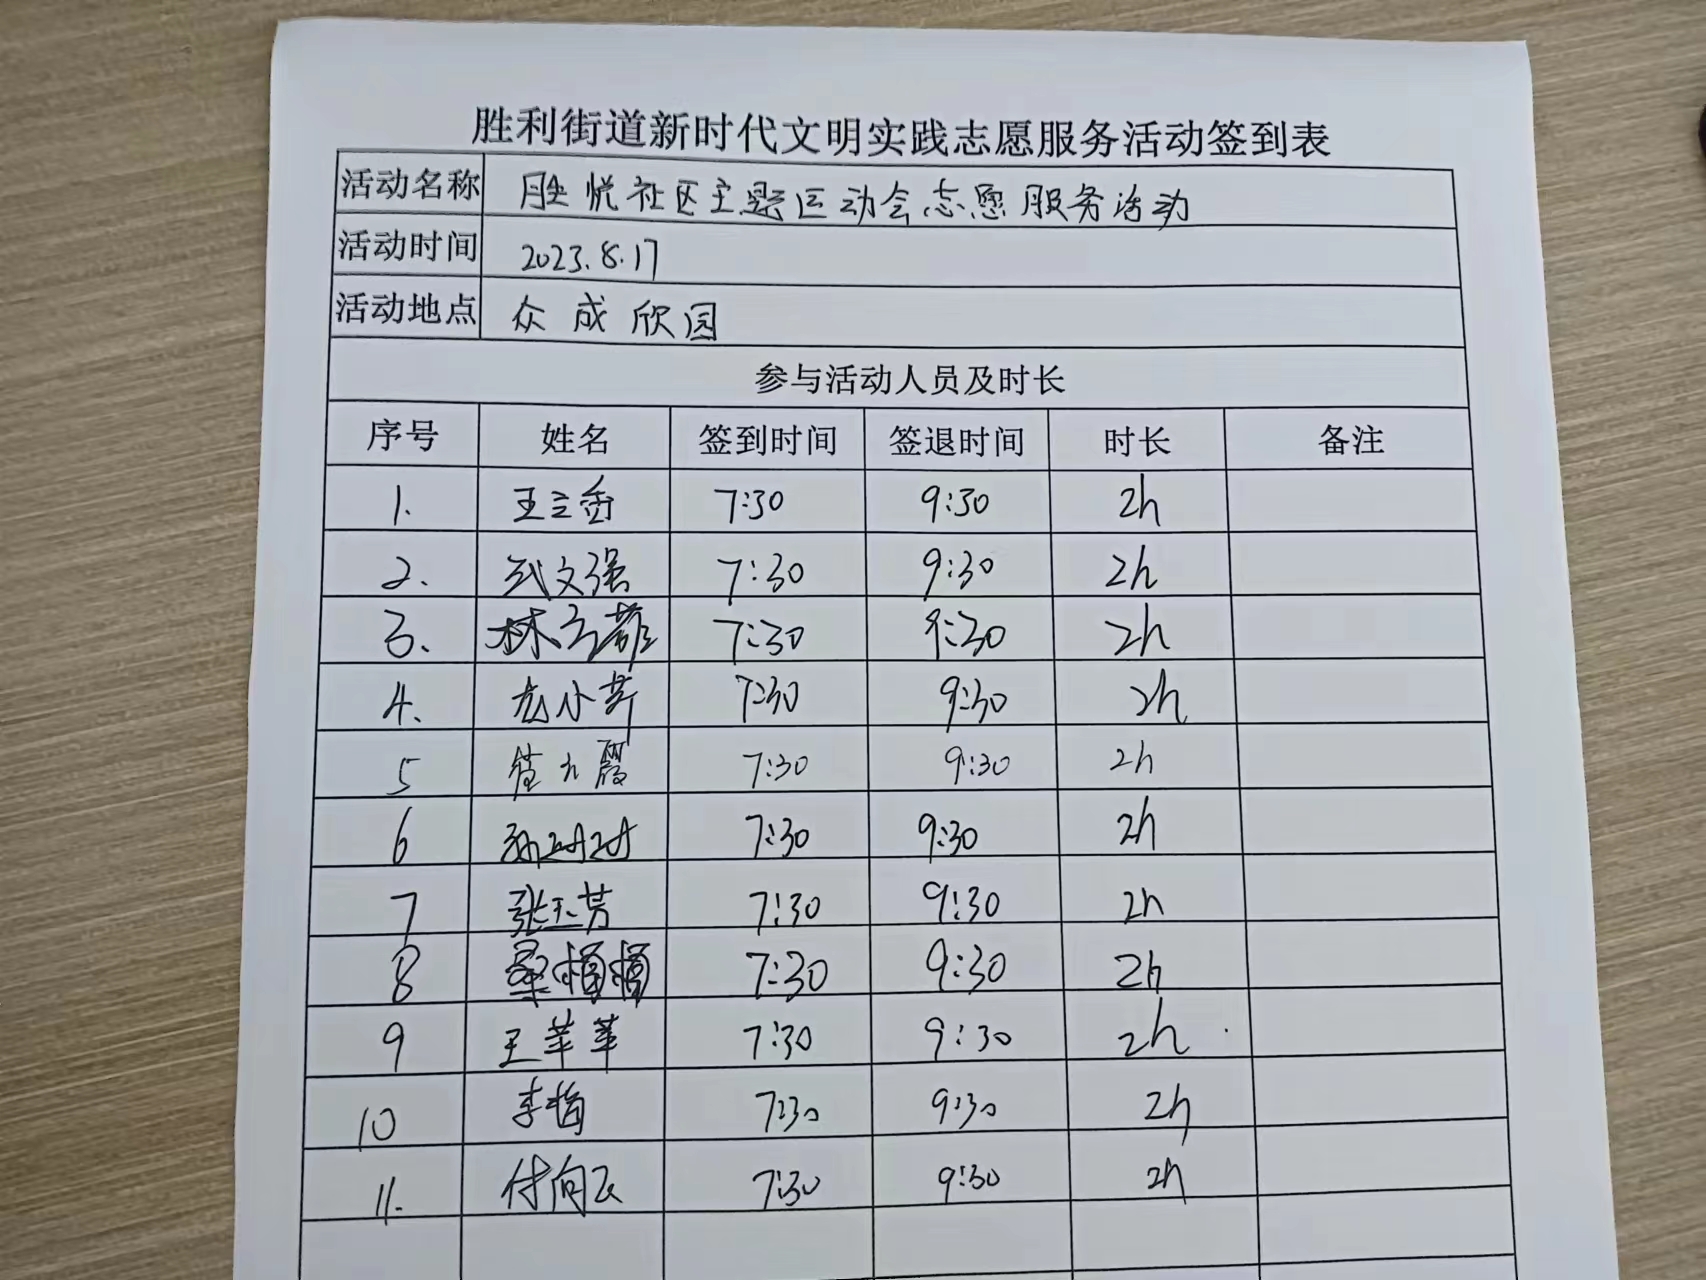 胜利街道新时代文明实践志愿服务活动签到表
活动名称 胜悦社区主题运动会志愿服务活动
活动时间 2023.8.17
活动地点 众成欣园
参与活动人员及时长
序号 姓名 签到时间 签退时间 时长 备注
1. 7:30 9:30 2h
2. 武文强 7:30 9:30 2h
3. 7:30 9:30 2h
4. 7:30 9:30 2h
5 7:30 9:30 2h
6 7:30 9:30 2h
7 张玉芳 7:30 9:30 2h
8 桑楠楠 7:30 9:30 2h
9 王苹苹 7:30 9:30 2h
10 李梅 7:30 9:30 2h
11. 付向飞 7:30 9:30 2h